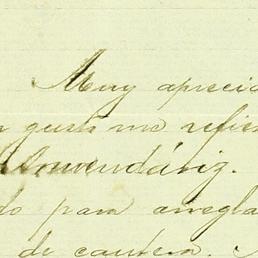 Muy aprecia
n gusto me refier
Almendáriz.
do para arregla
de cantera.